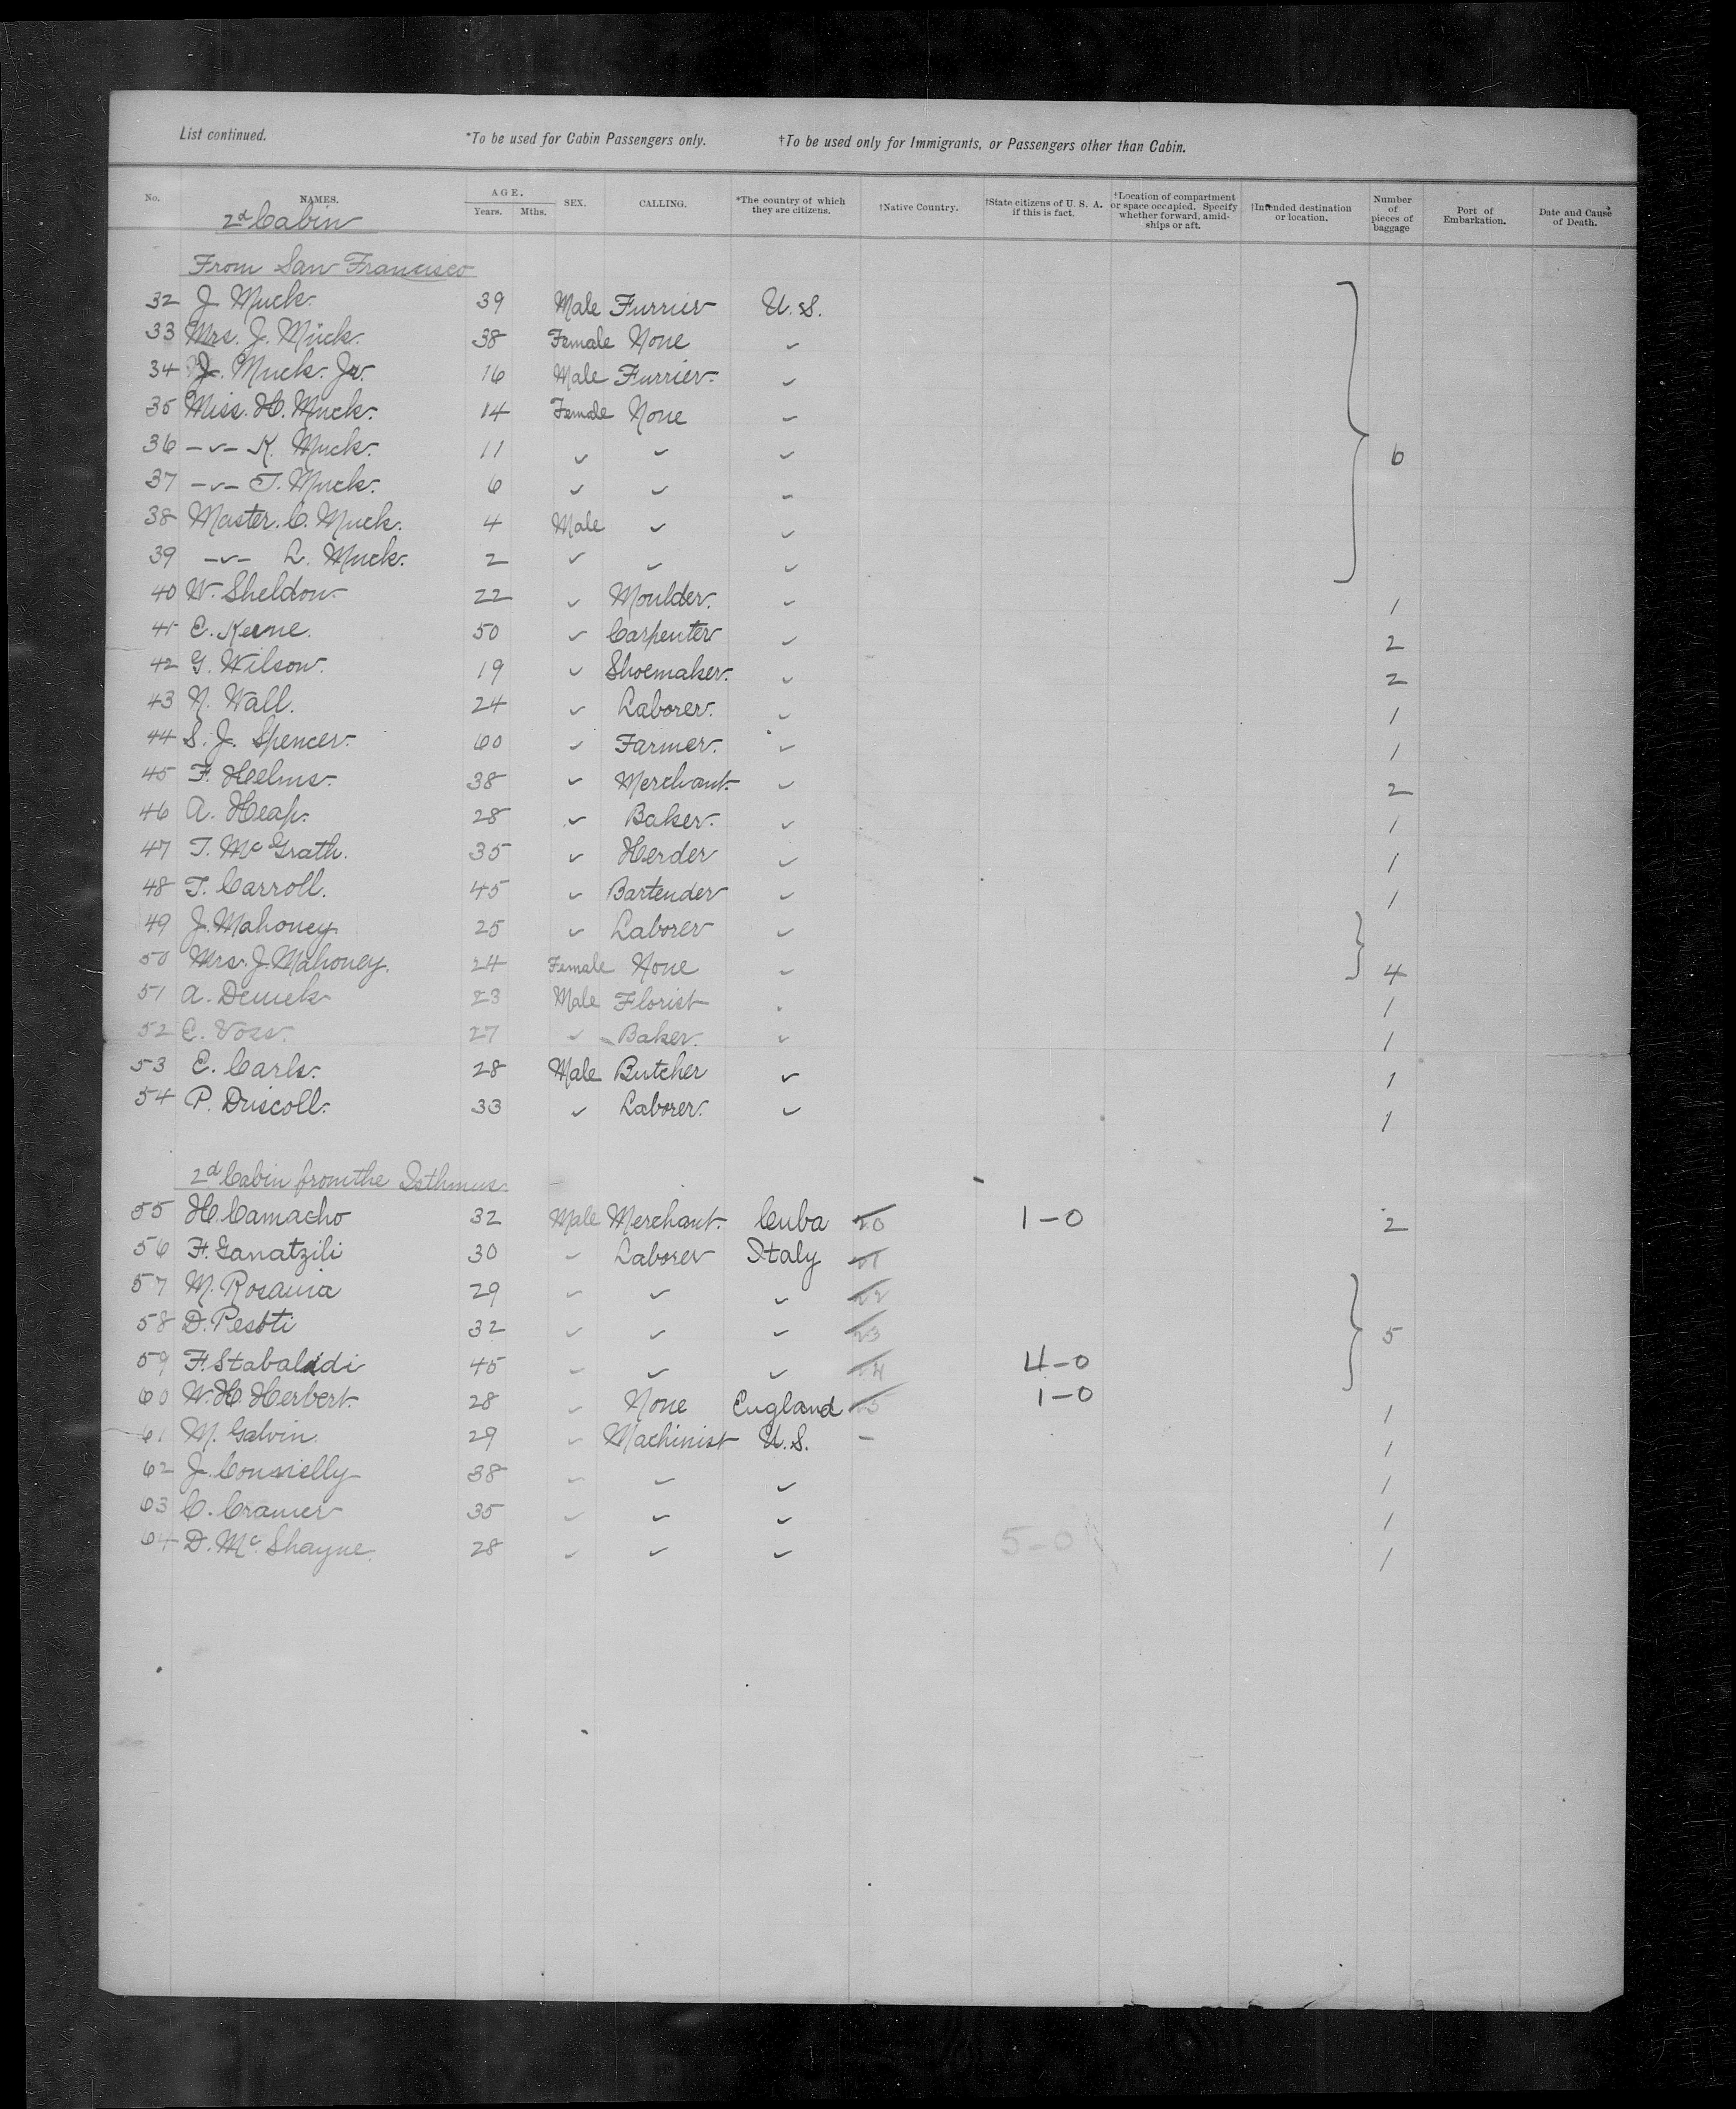 List continued. *To be used for Cabin Passengers only. †To be used only for Immigrants, or Passengers other than Cabin.
No. NAMES. AGE. Years. Mths. SEX. CALLING. *The country of which they are citizens. †Native Country. †State citizens of U. S. A. if this is fact. †Location of compartment or space occupied. Specify whether forward, amidships or aft. †Intended destination or location. Number of pieces of baggage Port of Embarkation. Date and Cause of Death.
2d Cabin
From San Francisco
32 J. Muck. 39 Male Furrier U. S.
33 Mrs. J. Muck. 38 Female None ✓
34 J. Muck. Jr. 16 Male Furrier. ✓
35 Miss. H. Muck. 14 Female None ✓
36 -✓- K. Muck. 11 ✓ ✓ ✓ 6
37 -✓- T. Muck. 6 ✓ ✓ ✓
38 Master. C. Muck. 4 Male ✓ ✓
39 -✓- L. Muck. 2 ✓ ✓ ✓
40 W. Sheldon. 22 ✓ Moulder. ✓ 1
41 E. Kerne. 50 ✓ Carpenter ✓ 2
42 G. Wilson. 19 ✓ Shoemaker. ✓ 2
43 N. Wall. 24 ✓ Laborer. ✓ 1
44 S. J. Spencer. 60 ✓ Farmer. ✓ 1
45 F. Helms. 38 ✓ Merchant. ✓ 2
46 A. Heap. 28 ✓ Baker. ✓ 1
47 T. McGrath. 35 ✓ Herder ✓ 1
48 T. Carroll. 45 ✓ Bartender ✓ 1
49 J. Mahoney 25 ✓ Laborer ✓
50 Mrs. J. Mahoney. 24 Female None ✓ 4
51 A. 23 Male Florist 1
52 E. Voss. 27 ✓ Baker. ✓ 1
53 E. Carls. 28 Male Butcher ✓ 1
54 P. Driscoll. 33 ✓ Laborer. ✓ 1
2d Cabin from the Isthmus
55 H. Camacho 32 Male Merchant. Cuba 20 1-0 2
56 F. Ganatzili 30 ✓ Laborer Italy 21
57 M. Rosania 29 ✓ ✓ ✓ 22
58 D. Pesoti 32 ✓ ✓ ✓ 23 5
59 F. Stabaldi 45 ✓ ✓ ✓ 24 4-0
60 W. H. Herbert. 28 ✓ None England 25 1-0 1
61 M. Galvin. 29 ✓ Machinist U. S. - 1
62 J. Connelly 38 ✓ ✓ ✓ 1
63 C. Cramer 35 ✓ ✓ ✓ 1
64 D. McShayne. 28 ✓ ✓ ✓ 5-0 1